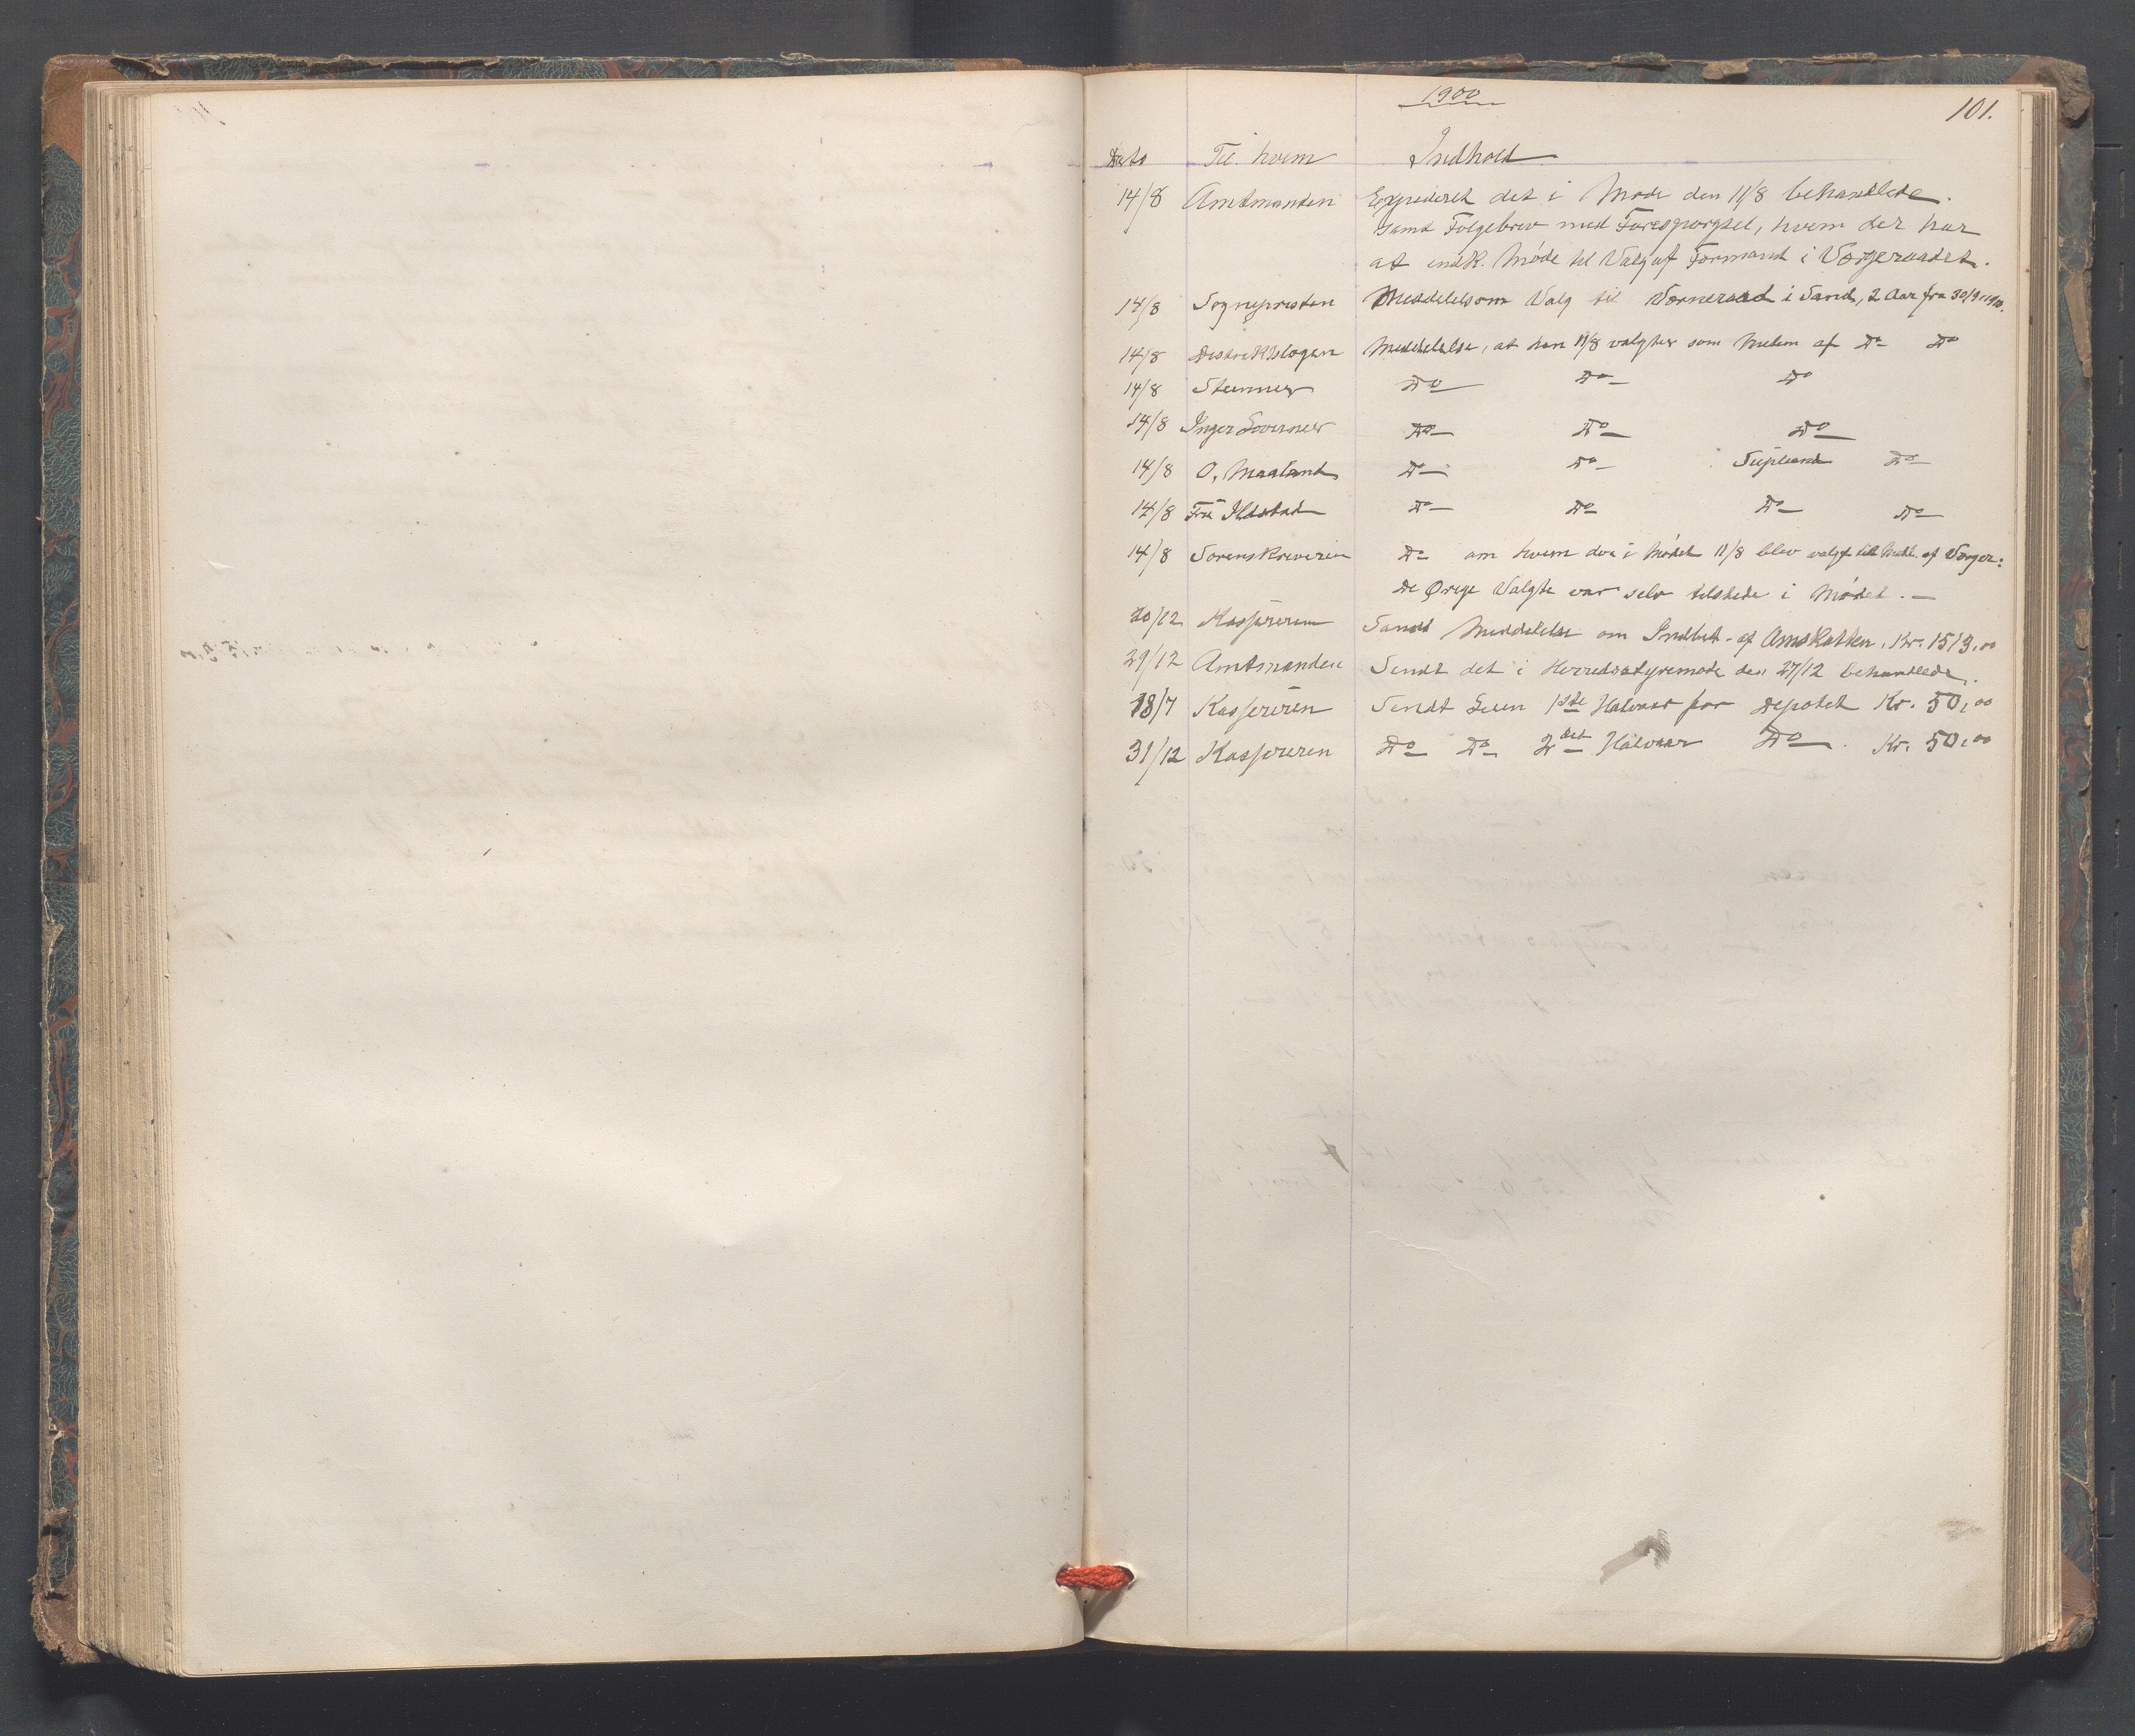 1900
101.
Dato Til hvem Indhold
14/8 Amtmanden Expederet det i Møde den 11/8 behandlede.
samt Følgebrev med Forespørgsel, hvem der har
at indk. Møde til Valg af Formand i Værgeraadet.
14/8 Sognepresten Meddelelse om Valg til Værneraad i Sand, 2 Aar fra 30/9-1900.
14/8 Distriktslægen Meddelelse, at han 11/8 valgtes som Medlem af Do Do
14/8 Steinnes Do Do Do
14/8 Inger Do Do Do
14/8 O. Maaland Do Do Supleant Do
14/8 Fru Ilstad Do Do Do Do
14/8 Sorenskriveren Do om hvem der i Mødet 11/8 blev valgt til Medl. af Værger:
De Øvrige Valgte var selv tilstede i Mødet. —
20/12 Kassereren Sendt Meddelelse om Indbet. af Amtskatten. Kr. 1513,00
29/12 Amtmanden Sendt det i Herredsstyremøte den 27/12 behandlede.
18/7 Kassereren Sendt Leien 1ste Halvaar for Depotet Kr. 50,00
31/12 Kassereren Do Do 2det Halvaar Do. Kr. 50,00